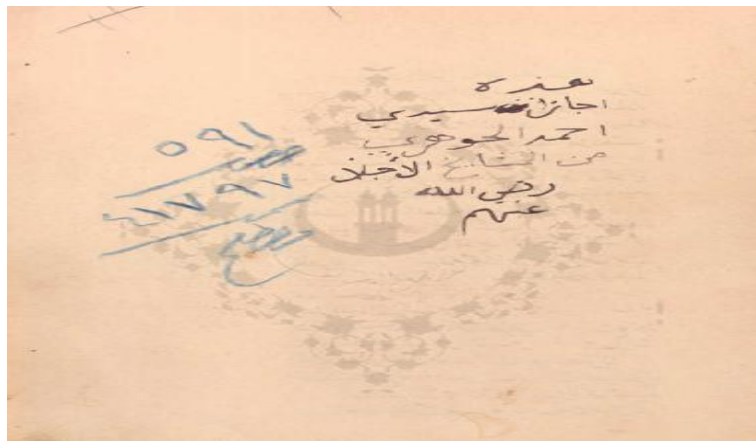 هذه
اجازات سيدي
احمد الجوهري
من المشايخ الأجلا
رضي الله
عنهم
٥٩١
٤١٧٩٧